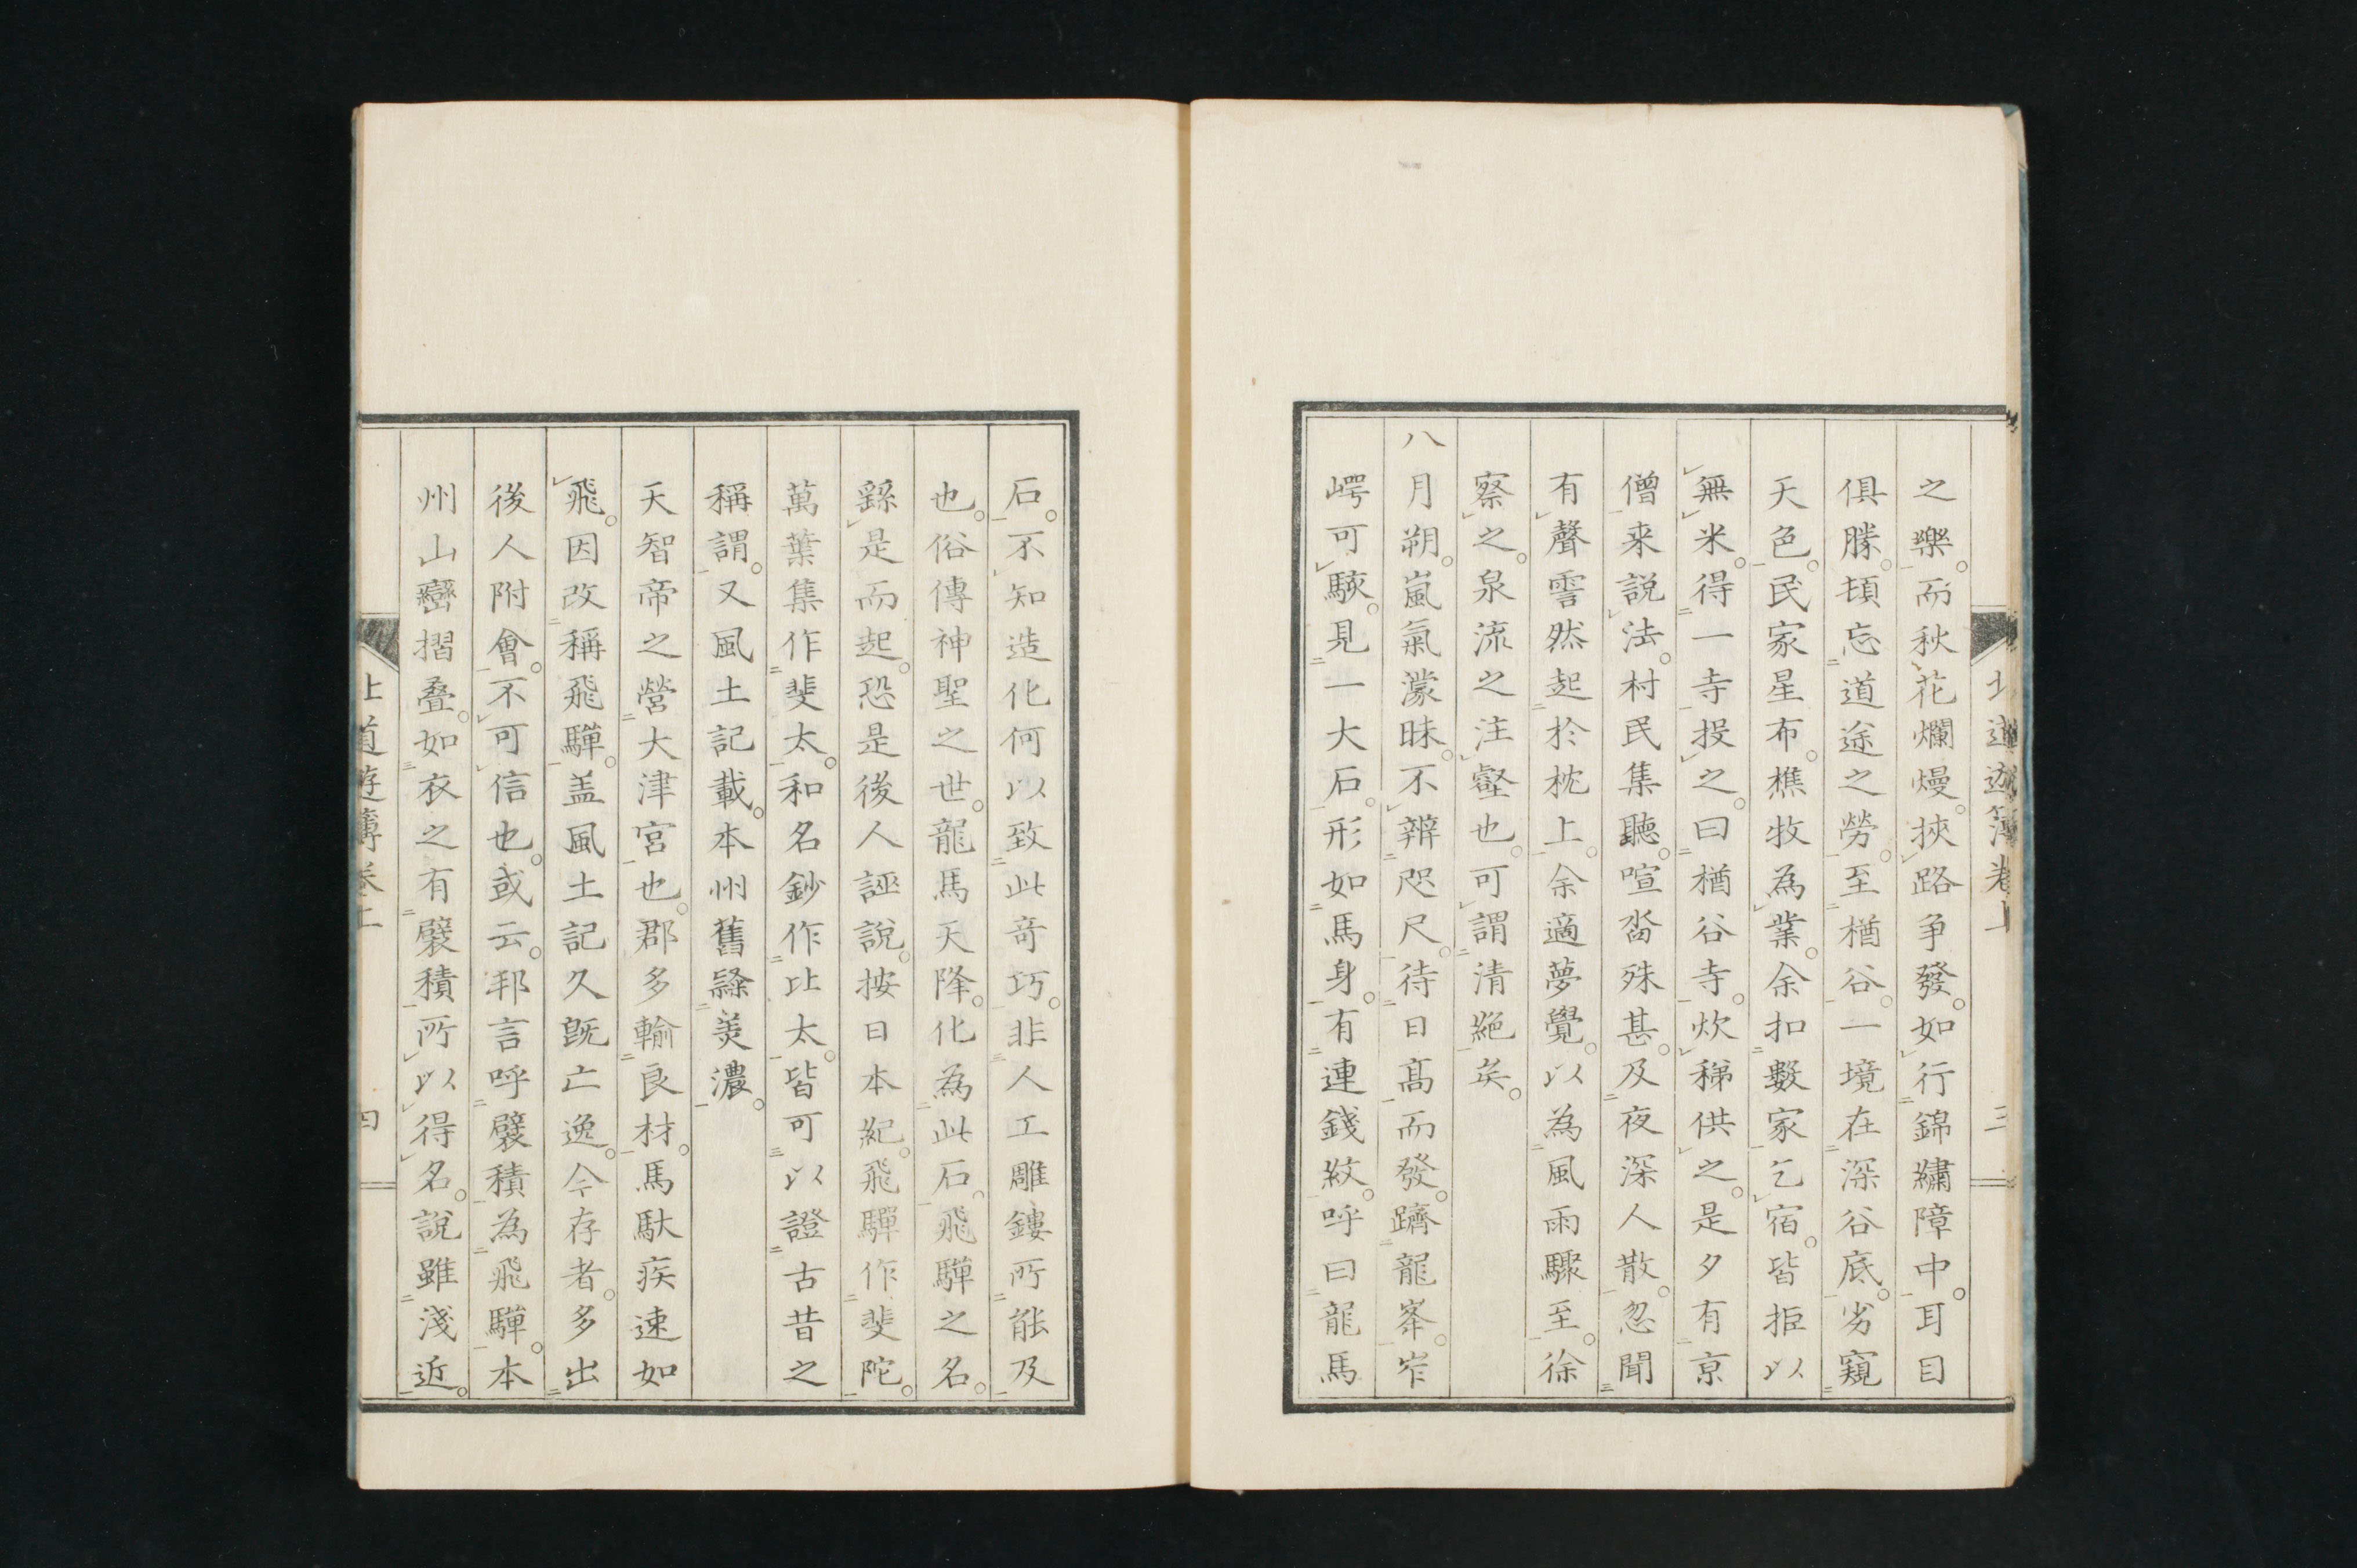 之樂。而秋花爛熳。挾路争發。如行錦繡障中。耳目
俱勝。頓忘道途之勞。至楢谷。一境在深谷底。劣窺
天色。民家星布。樵牧為業。余扣數家乞宿。皆拒以
無米。得一寺投之。曰楢谷寺。炊稊供之。是夕有京
僧来説法。村民集聽。喧沓殊甚。及夜深人散。忽聞
有聲雩然起於枕上。余適夢覺。以為風雨驟至。徐
察之。泉流之注壑也。可謂清絶矣。
八月朔。嵐氣濛昧。不辨咫尺。待日髙而發。躋龍峯。岝
崿可駭。見一大石。形如馬身。有連錢紋。呼曰龍馬
石。不知造化何以致此奇巧。非人工雕鏤所能及
也。俗傳神聖之世。龍馬天降。化為此石。飛驒之名。
繇是而起。恐是後人誣說。按日本紀。飛驒作斐陀。
萬葉集作斐太。和名鈔作比太。皆可以證古昔之
稱謂。又風土記載。本州舊隸美濃。
天智帝之營大津宮也。郡多輸良材。馬馱疾速如
飛。因改稱飛驒。盖風土記久既亡逸。今存者。多出
後人附會。不可信也。或云。邦言呼襞積為飛驒。本
州山巒摺疊。如衣之有襞積。所以得名。說雖淺近。
道遊簿卷上
四
卷上
三